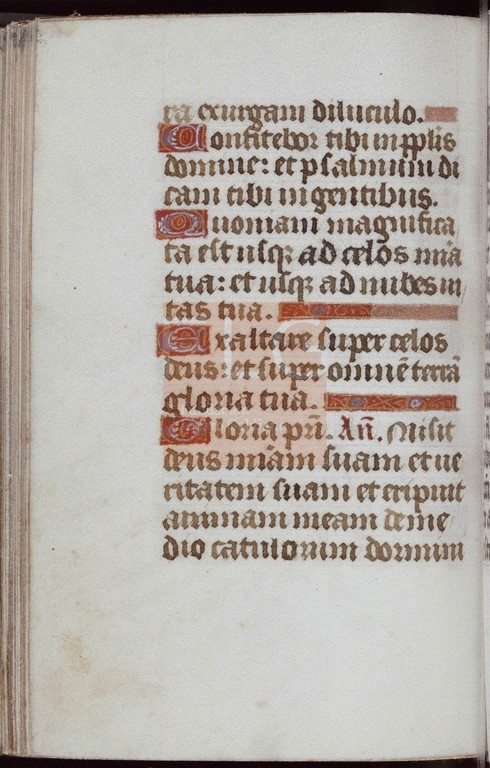 ra exurgam diluculo.
Confitebor tibi in pplis
domine: et psalmum di
cam tibi in gentibus.
Quoniam magnifica
ta est usqꝫ ad celos mĩa
tua: et usqꝫ ad nubes ueri
tas tua.
Exaltare super celos
deus: et super omnē terrā
gloria tua.
Gloria pr̃i. An̄. Misit
deus mĩam suam et ue
ritatem suam et eripuit
animam meam de me
dio catulorum dormini